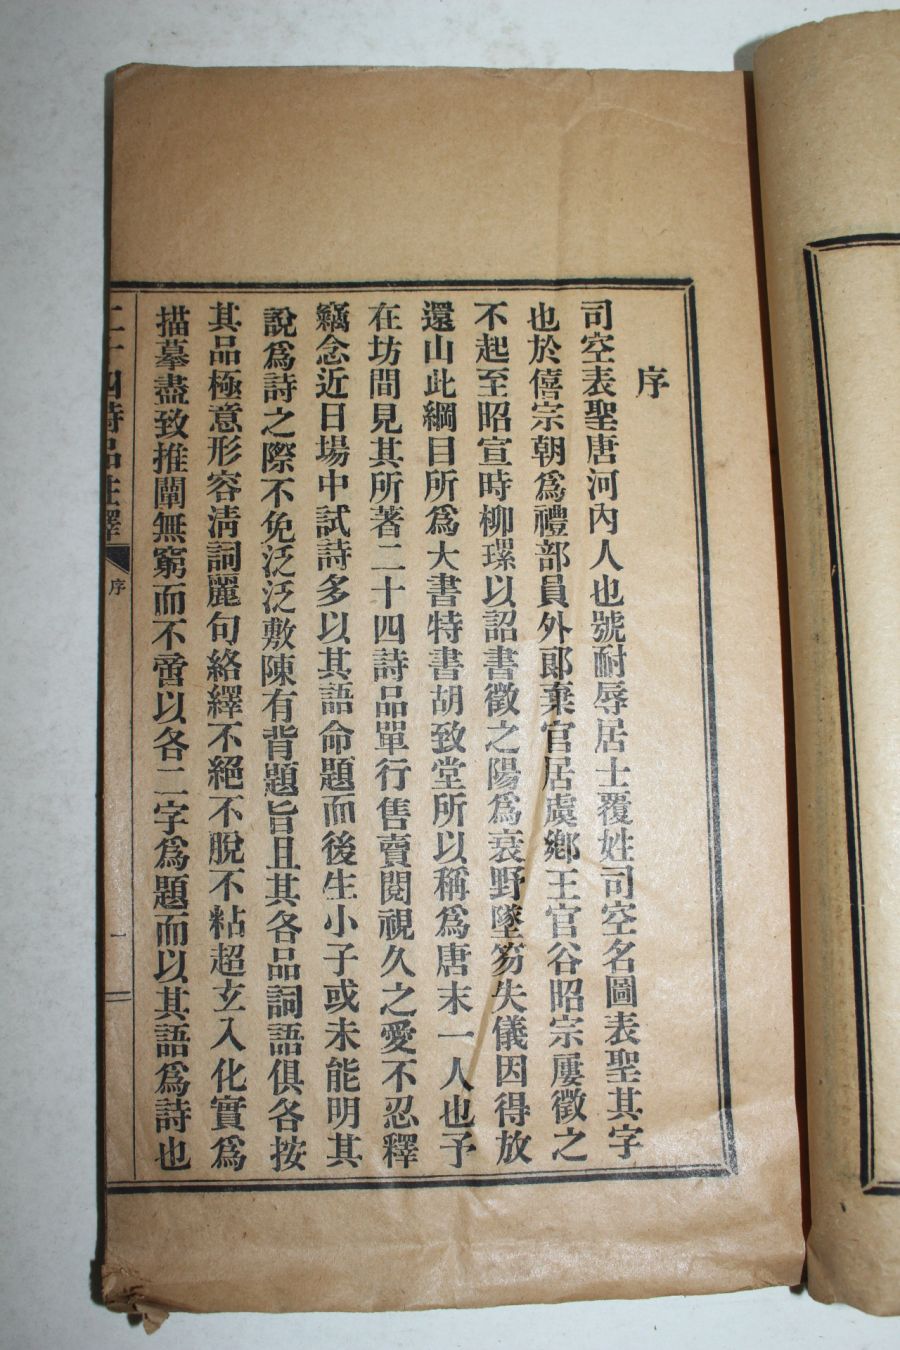 序
司空表聖唐河內人也號耐辱居士覆姓司空名圖表聖其字
也於僖宗朝爲禮部員外郞棄官居虞鄕王官谷昭宗屢徵之
不起至昭宣時柳璨以詔書徵之陽爲衰野墜笏失儀因得放
還山此綱目所爲大書特書胡致堂所以稱爲唐末一人也予
在坊間見其所著二十四詩品單行售賣閱視久之愛不忍釋
竊念近日場中試詩多以其語命題而後生小子或未能明其
說爲詩之際不免泛泛敷陳有背題旨且其各品詞語俱各按
其品極意形容淸詞麗句絡繹不絕不脫不粘超玄入化實爲
描摹盡致推闡無窮而不啻以各二字爲題而以其語爲詩也
二十四詩品注釋
序
一